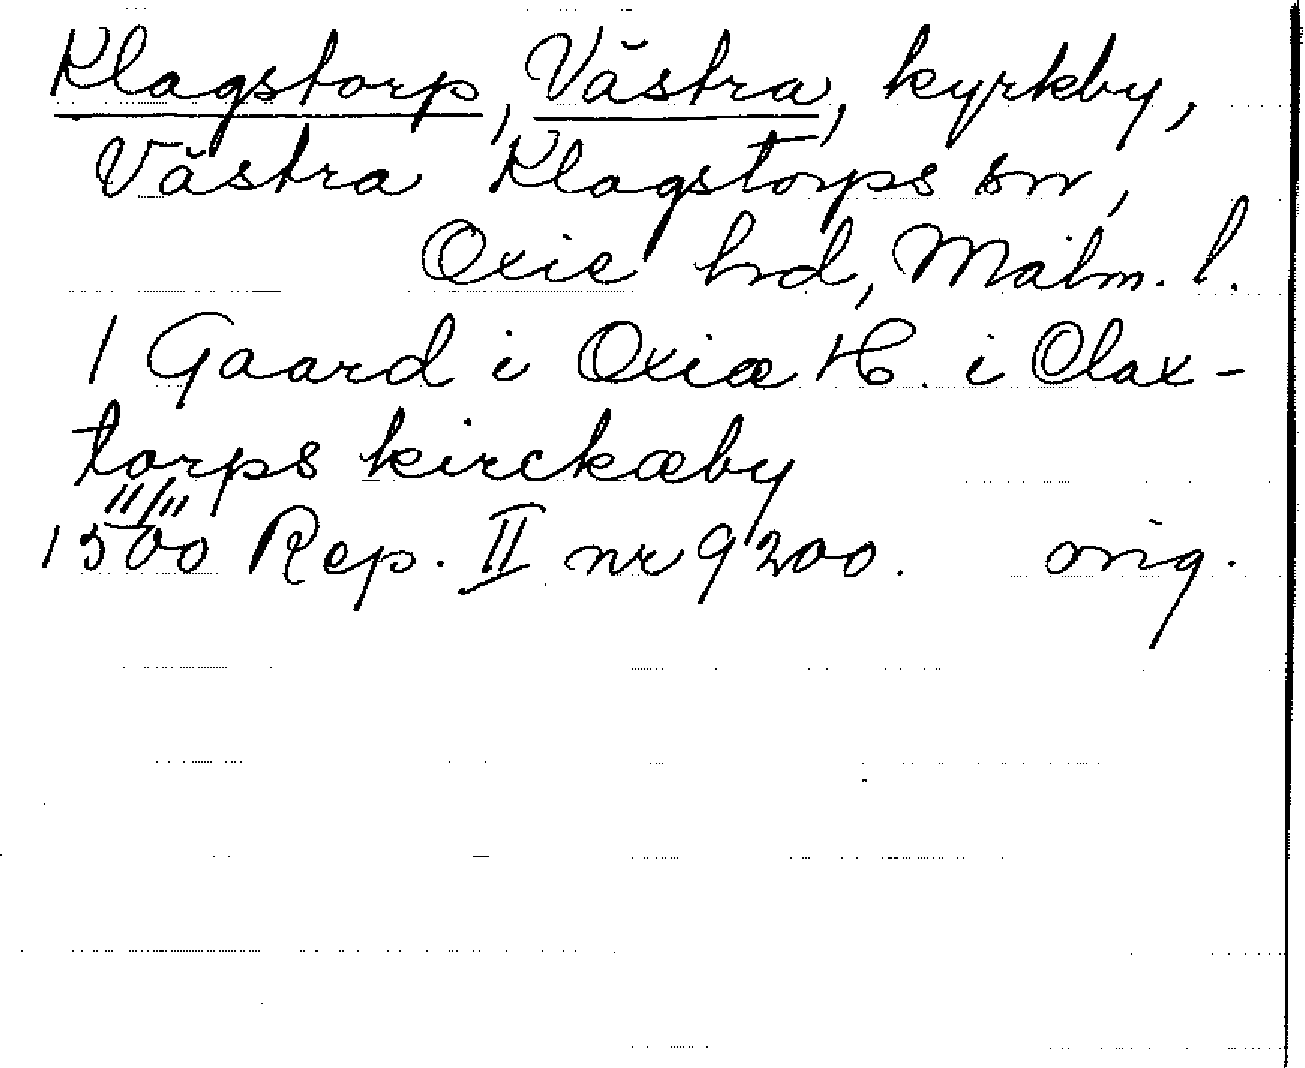 Klagstorp, Västra, kyrkby,
Västra Klagstorps sn,
Oxie hrd, Malm. l.
1 Gaard i Oxiæ H. i Clax-
torps kirckæby
11/11
1500 Rep. II nr 9200. orig.